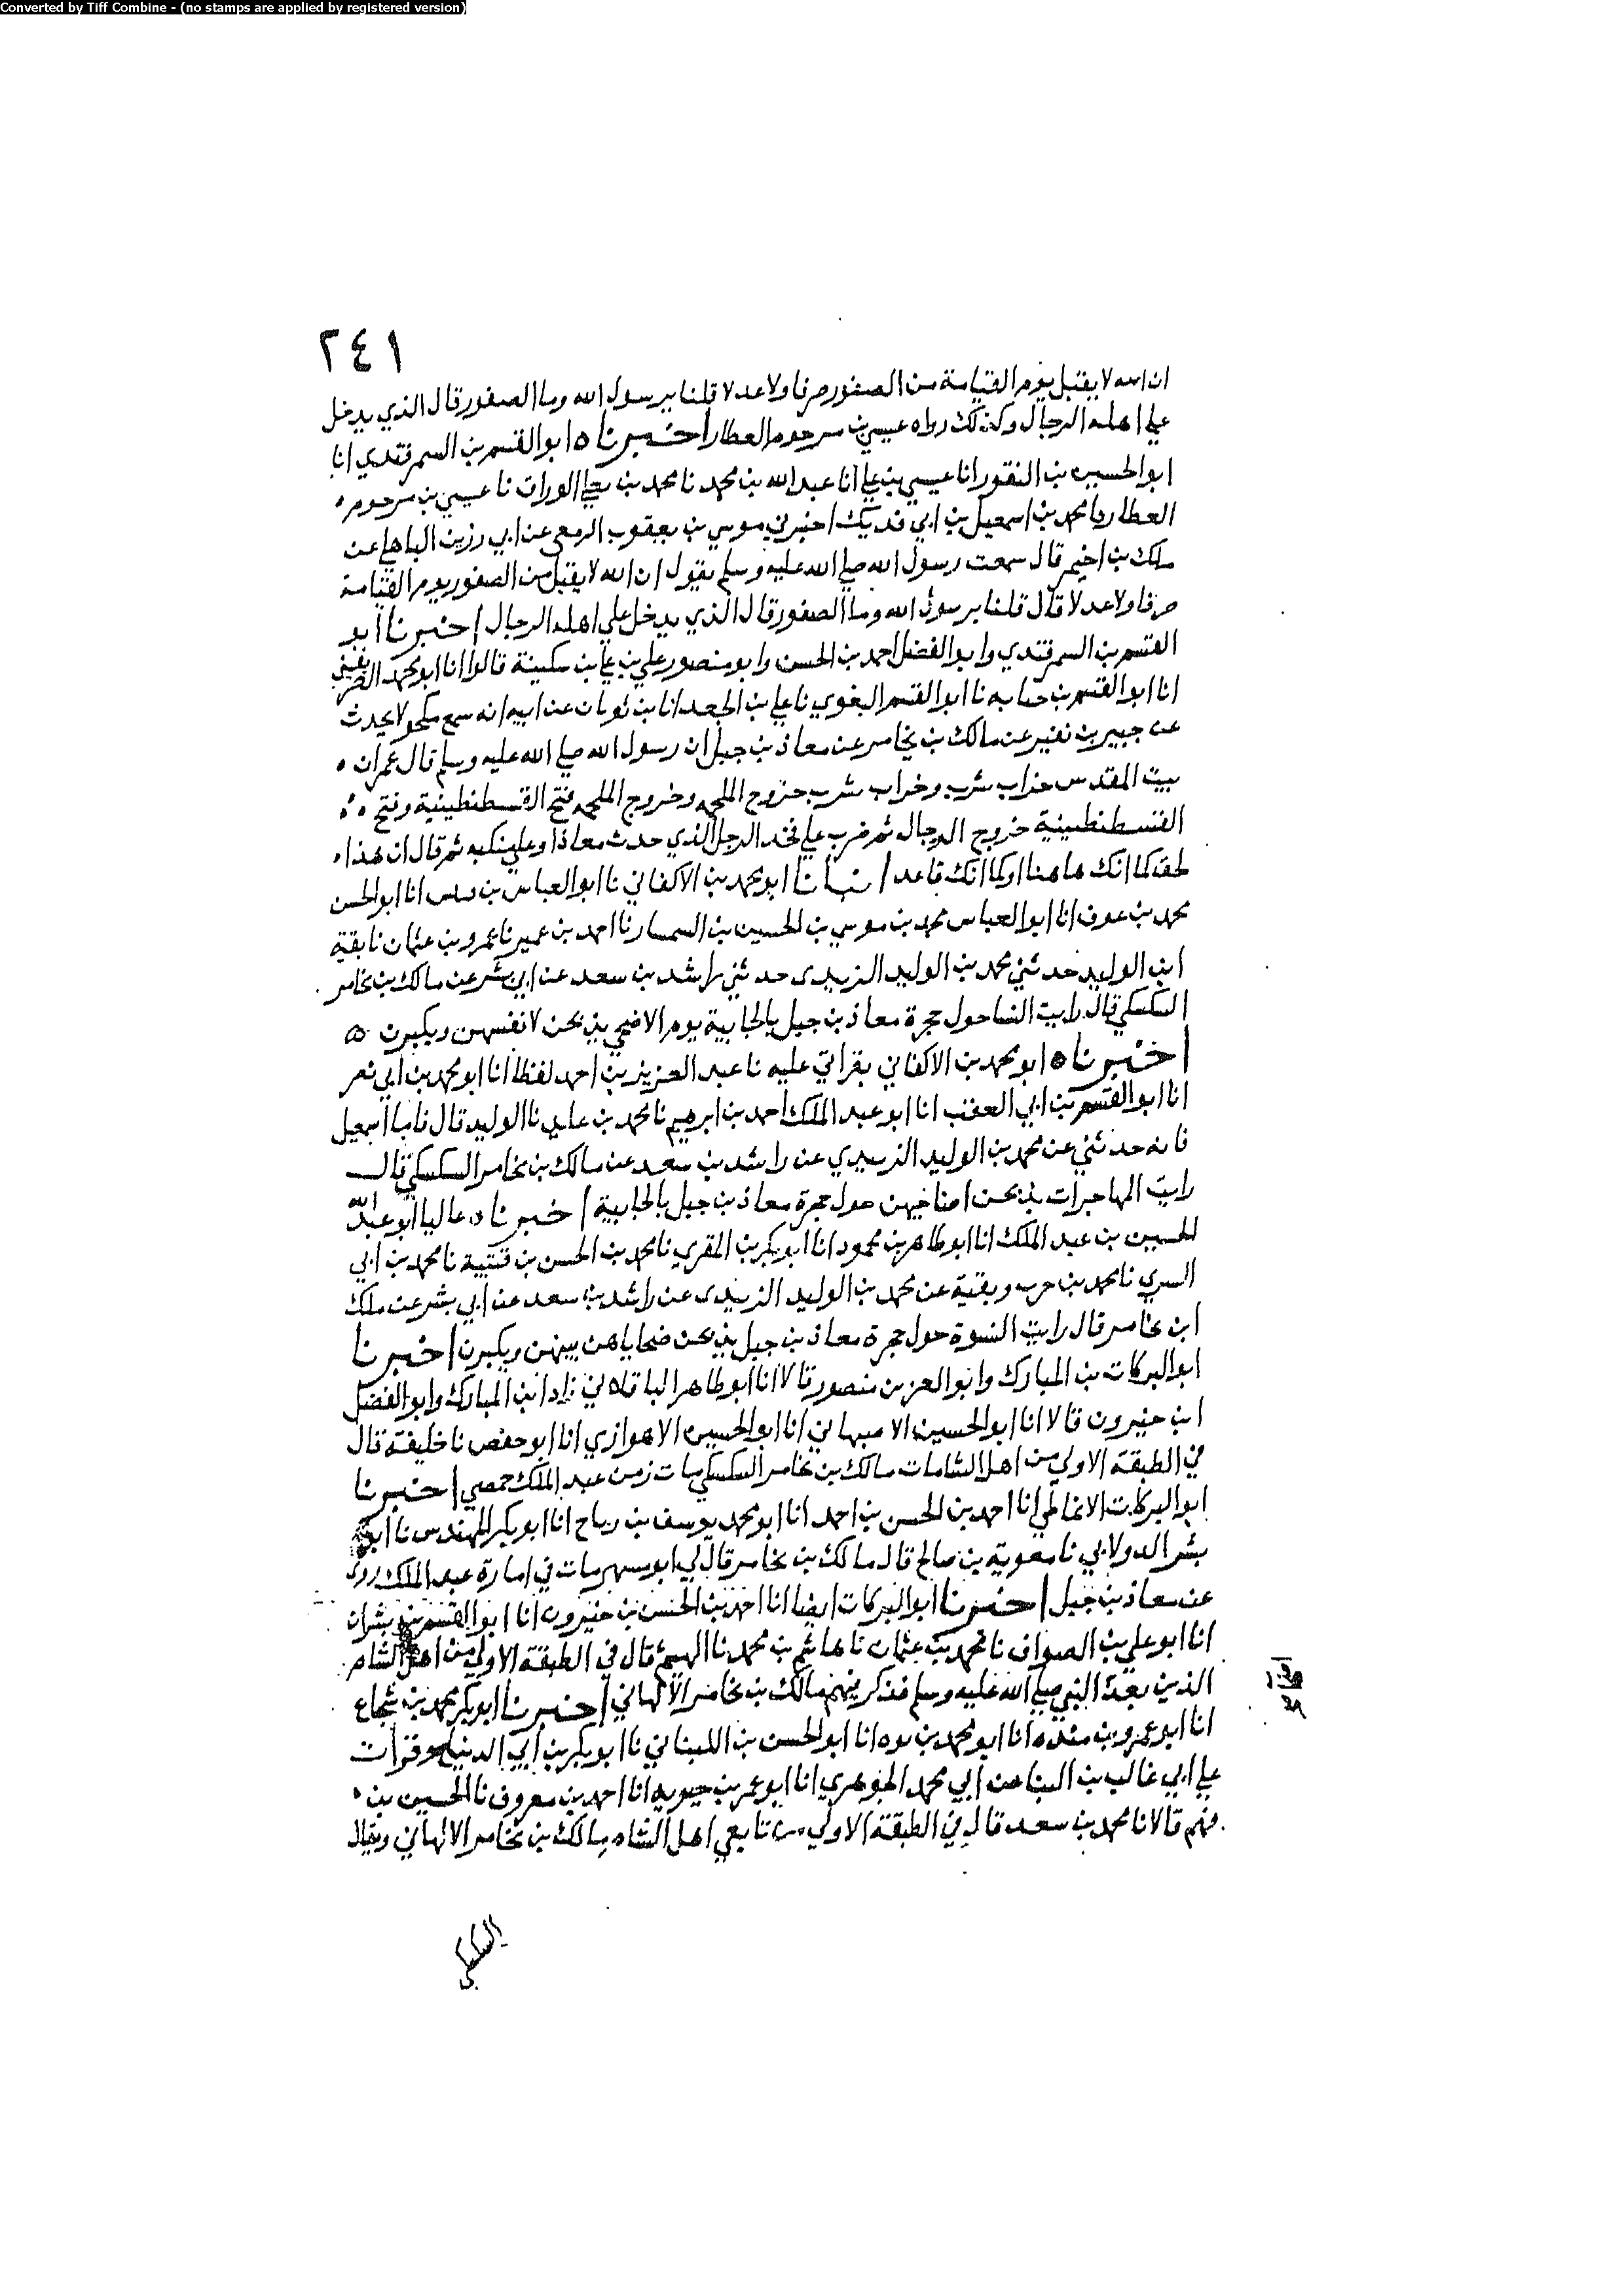 Converted by Tiff Combine - (no stamps are applied by registered version)
٢٤١
ان الله لا يقبل يوم القيامة من الصقور صرفا ولا عدلا قلنا يرسول الله وما الصقور قال الذي يدخل
علي اهله الرجال وكذلك رواه عيسي بن مرحوم العطار اخبرناه ابو القسم بن السمرقندي انا
ابو الحسين بن النقور انا عيسي بن علي انا عبد الله بن محمد نا محمد بن الوراق نا عيسي بن مرحوم
العطار نا محمد بن اسمعيل بن ابي فديك اخبرني موسي بن يعقوب الزمعي عن ابي رزين الباهلي عن
ملك بن اخيمر قال سمعت رسول الله صلي الله عليه وسلم يقول ان الله لا يقبل من الصقور يوم القيامة
صرفا ولا عدلا قال قلنا يرسول الله وما الصقور قال الذي يدخل علي اهله الرجال اخبرنا ابو
القسم بن السمرقندي وابو الفضل احمد بن الحسن وابو منصور علي بن علي بن سكينة قالوا انا ابو محمد الصريفيني
انا ابو القسم بن حبابه نا ابو القسم البغوي نا علي بن الجعد انا بن ثوبان عن ابيه انه سمع مكحولا يحدث
عن جبير بن نفير عن مالك بن يخامر عن معاذ بن جبل ان رسول الله صلي الله عليه وسلم قال عمران
بيت المقدس خراب يثرب وخراب يثرب خروج الملحمه وخروج الملحمه فتح القسطنطينية وفتح
القسطنطينية خروج الدجال ثم ضرب علي فخذ الرجل الذي حدث معاذا وعلي منكبه ثم قال ان هذا
لحق كما انك هاهنا او كما انك قاعد انبانا ابو محمد بن الاكفاني نا ابو العباس بن انا ابو الحسن
محمد بن عوف انا ابو العباس محمد بن موسي بن الحسين بن السمسار نا احمد بن عمير نا عمرو بن عثمان نا بقية
ابن الوليد حدثني محمد بن الوليد الزبيدي حدثني راشد بن سعد عن ابي بشر عن مالك بن يخامر
السكسكي قال رايت النسا حول حجرة معاذ بن جبل بالجابية يوم الاضحي يذبحن لانفسهن ويكبرن
اخبرناه ابو محمد بن الاكفاني بقراتي عليه نا عبد العزيز بن احمد لفظا انا ابو محمد بن ابي نصر
انا ابو القسم بن ابي العقب انا ابو عبد الملك احمد بن ابرهيم نا محمد بن عايذ نا الوليد قال فاما اسمعيل
فانه حدثني عن محمد بن الوليد الزبيدي عن راشد بن سعد عن مالك بن يخامر السكسكي قال
رايت المهاجرات يذبحن اضاحيهن حول حجرة معاذ بن جبل بالجابية اخبرناه عاليا ابو عبد الله
الحسين بن عبد الملك انا ابو طاهر بن محمود انا ابو بكر بن المقري نا محمد بن الحسن بن قتيبة نا محمد بن ابي
السري نا محمد بن حرب وبقية عن محمد بن الوليد الزبيدي عن راشد بن سعد عن ابي بشر عن ملك
ابن يخامر قال رايت النسوة حول حجرة معاذ بن جبل يذبحن ضحاياهن بينهن ويكبرن اخبرنا
ابو البركات بن المبارك وابو العز بن منصور قالا انا ابو طاهر الباقلاني زاد ابن المبارك وابو الفضل
ابن خيرون قالا انا ابو الحسين الاصبهاني انا ابو الحسين الاهوازي انا ابو حفص نا خليفة قال
في الطبقة الاولي من اهل الشامات مالك بن يخامر السكسكي مات زمن عبد الملك حمصي اخبرنا
ابو البركات الانماطي انا احمد بن الحسن بن احمد انا ابو محمد يوسف بن رباح انا ابو بكر المهندس نا ابو
بشر الدولابي نا معوية بن صالح قال مالك بن يخامر قال لي ابو مسهر مات في امارة عبد الملك روي
عن معاذ بن جبل اخبرنا ابو البركات ايضا انا احمد بن الحسن بن خيرون انا ابو القسم بن بشران
انا ابو علي بن الصواف نا محمد بن عثمان نا هاشم بن محمد نا الهيثم قال في الطبقة الاولي من اهل الشام
الذين بعد النبي صلي الله عليه وسلم فذكر منهم مالك بن يخامر الالهاني اخبرنا ابو بكر محمد بن شجاع
انا ابو عمرو بن منده انا ابو محمد بن يوه انا ابو الحسن بن اللبناني نا ابو بكر بن ابي الدنيا ح وقرات
علي ابي غالب بن البنا عن ابي محمد الجوهري انا ابو عمر بن حيويه انا احمد بن معروف نا الحسين بن
فهم قالا نا محمد بن سعد قال في الطبقة الاولي من تابعي اهل الشام مالك بن يخامر الالهاني ويقال
السكسكي